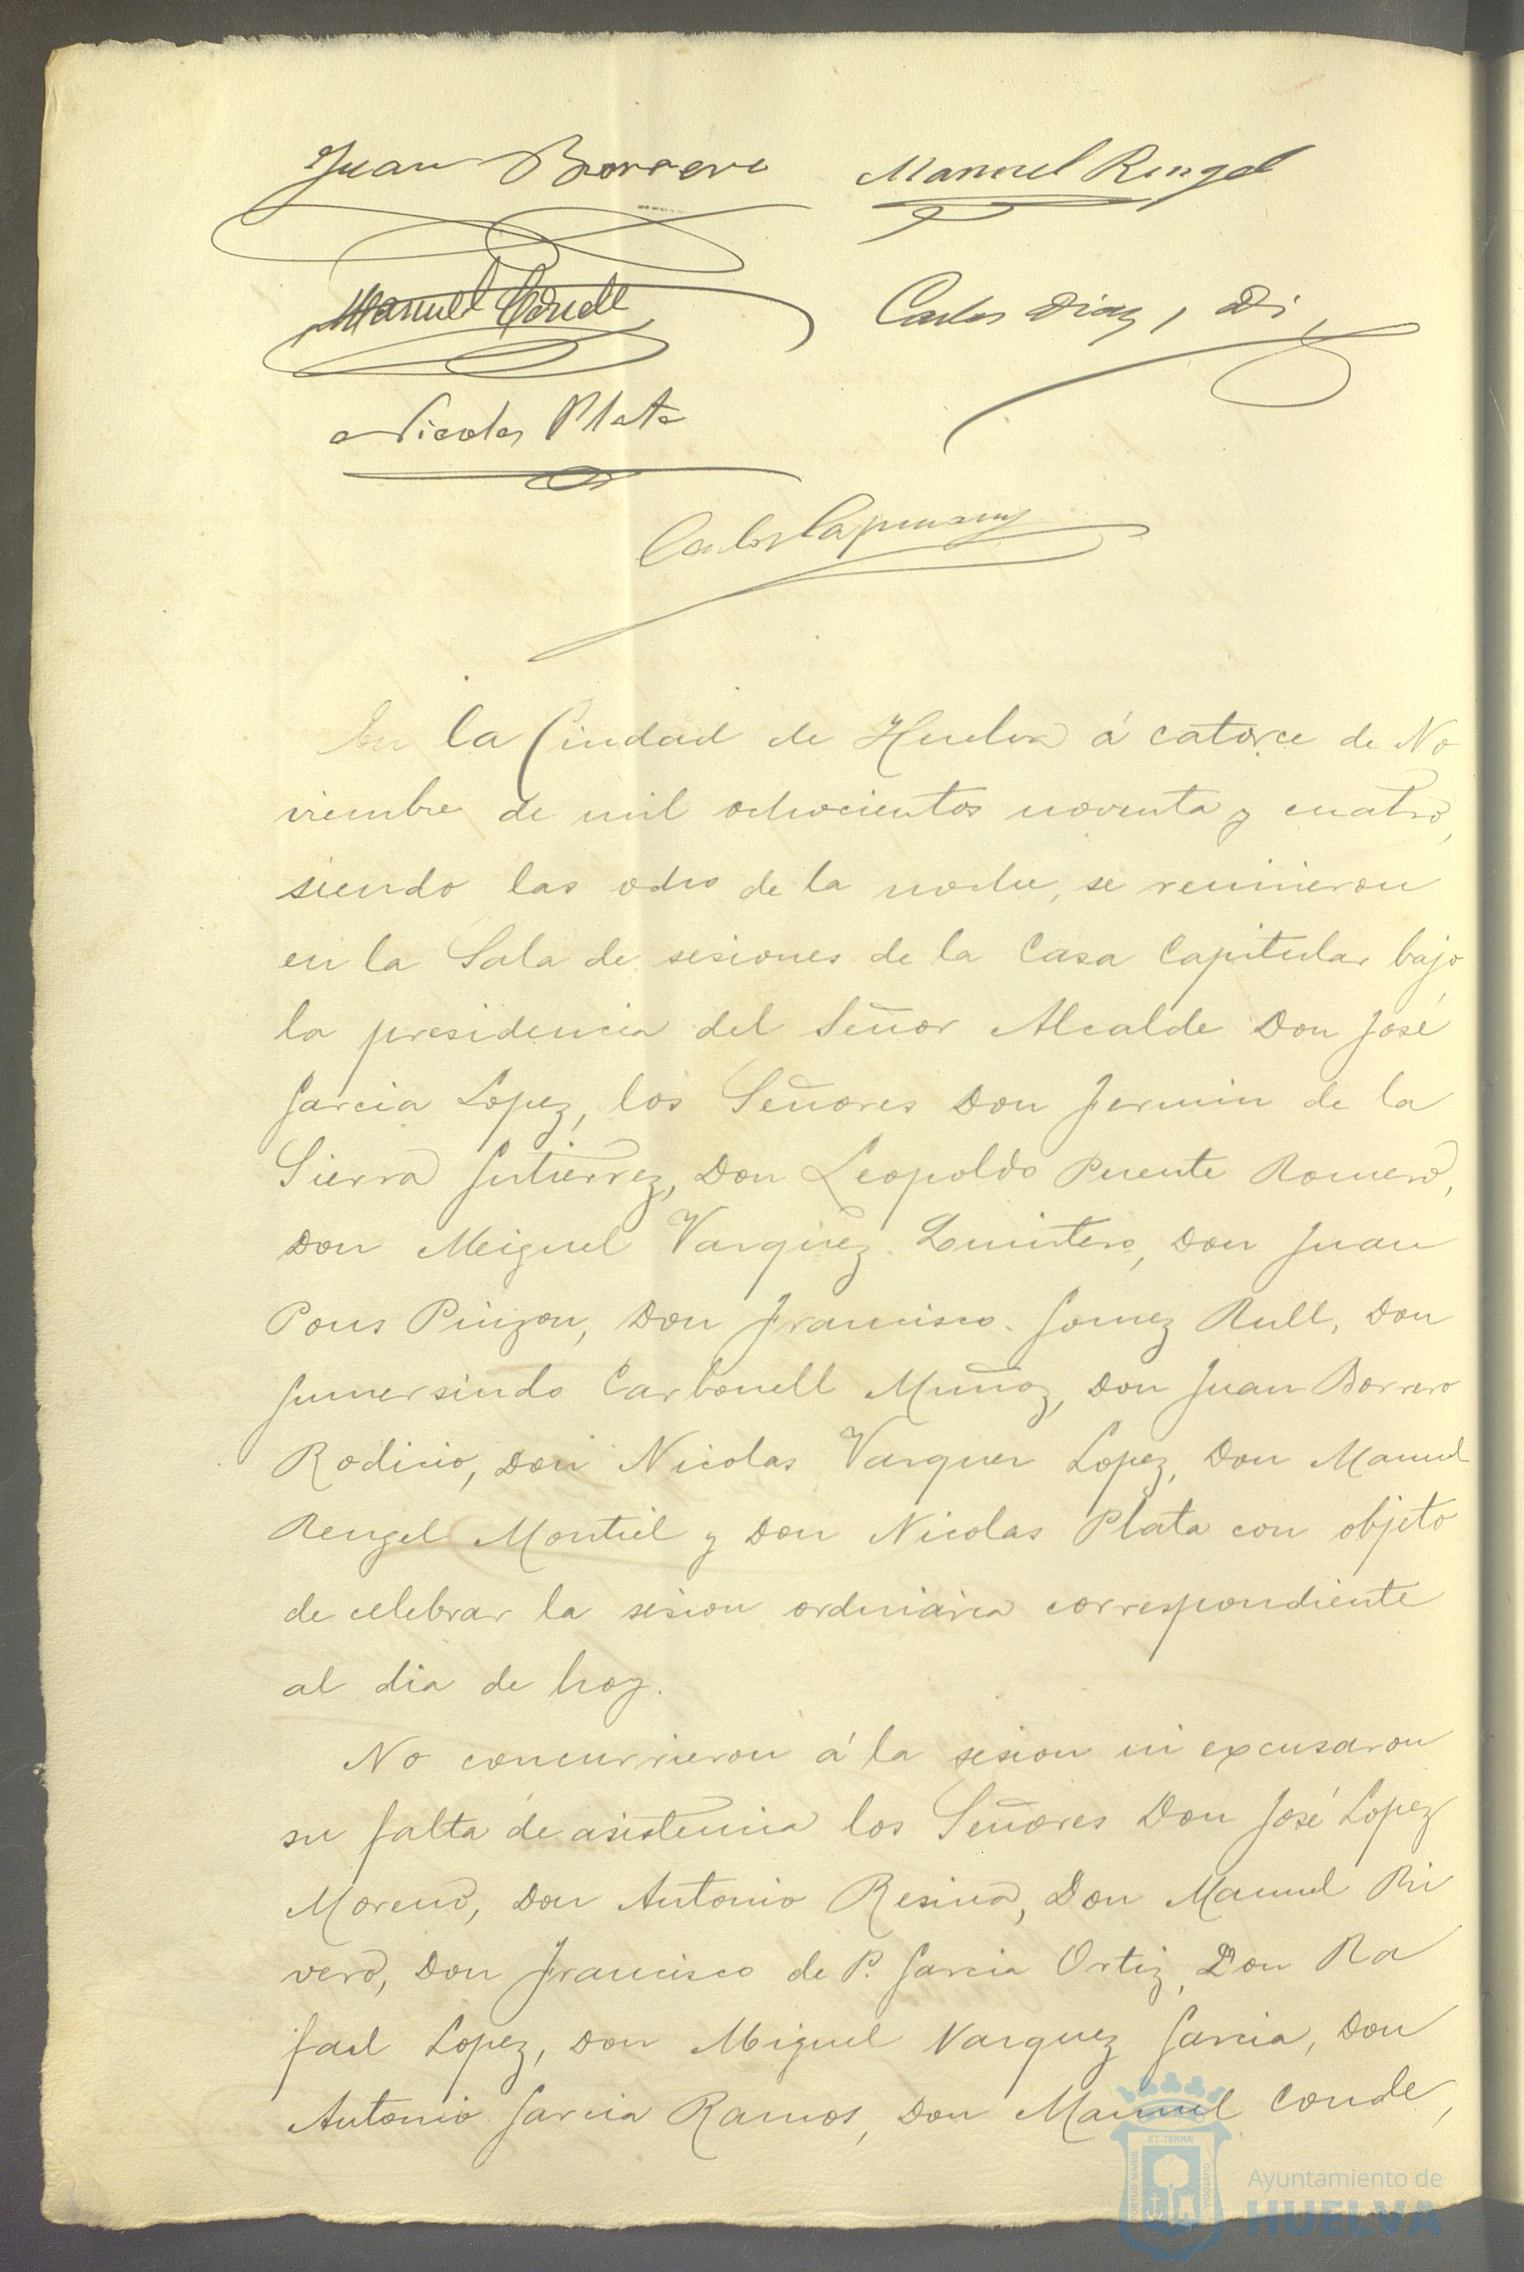 Juan Borrero Manuel Rengel
Manuel Conde Carlos Diaz, Di
Nicolas Plata
Carlos Capmany
En la Ciudad de Huelva á catorce de No
viembre de mil ochocientos noventa y cuatro,
siendo las ocho de la noche, se reunieron
en la Sala de sesiones de la Casa Capitular bajo
la presidencia del Señor Alcalde Don José
Garcia Lopez, los Señores Don Fermin de la
Sierra Gutierrez, Don Leopoldo Puente Romero,
Don Miguel Vazquez Quintero, Don Juan
Pons Pinzon, Don Francisco Gomez Rull, Don
Gumersindo Carbonell Muñoz, Don Juan Borrero
Rodicio, Don Nicolas Vazquez Lopez, Don Manuel
Rengel Montiel y Don Nicolas Plata con objeto
de celebrar la sesion ordinaria correspondiente
al dia de hoy.
No concurrieron á la sesion ni excusaron
su falta de asistencia los Señores Don José Lopez
Moreno, Don Antonio Resina, Don Manuel Ri
vero, Don Francisco de P. Garcia Ortiz, Don Ra
fael Lopez, Don Miguel Vazquez Garcia, Don
Antonio Garcia Ramos, Don Manuel Conde,
PORTUS MARIS ET TERRAE CUSTODIA
Ayuntamiento de
HUELVA